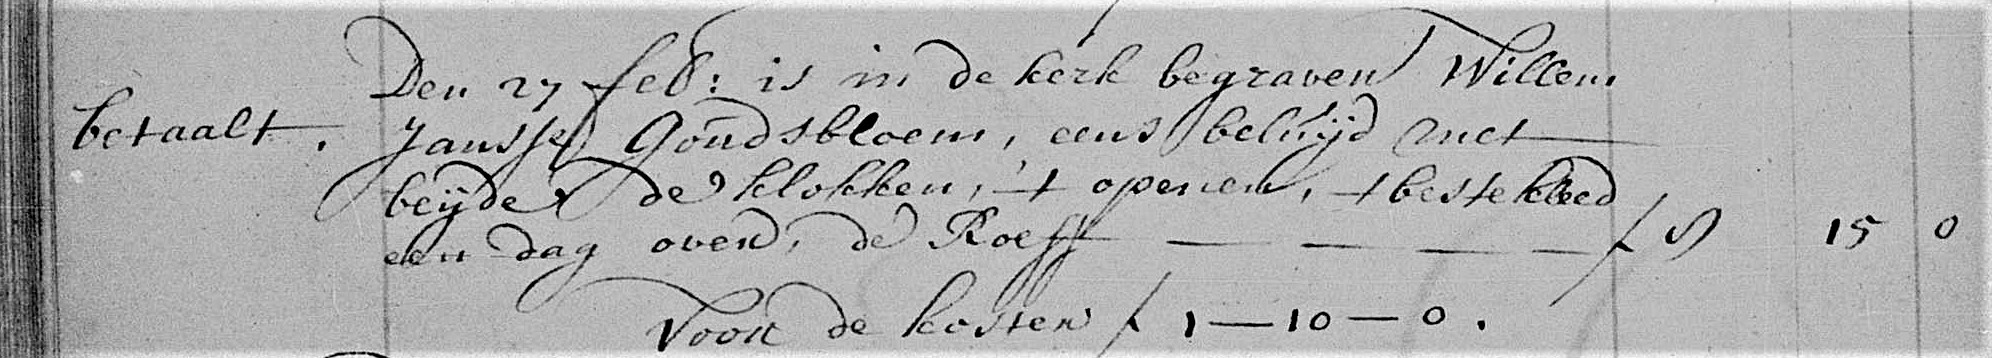 Den 27 feb: is in de kerk begraven Willem
betaalt. Jansse Goudsbloem, eens beluijd met
beijde de klokken, 't openen, 't beste kleed
een dag over, de Roeff — — — — ƒ 15 0
Voor de kosten ƒ 1—10—0.